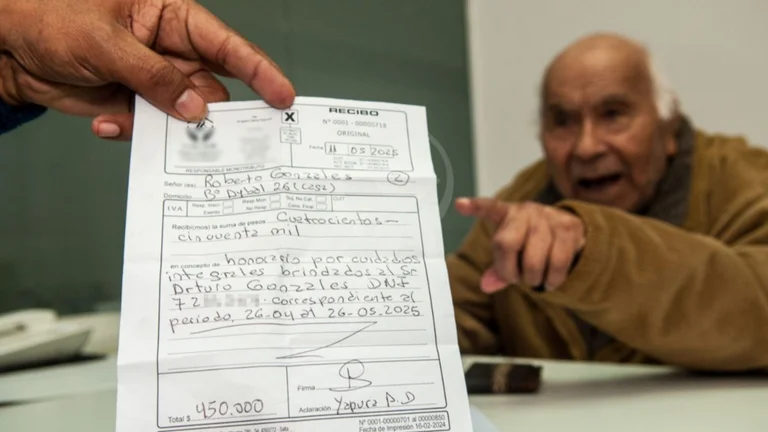 RECIBO
X
Nº 0001 - 00000718
ORIGINAL
Fecha 11 05 2025
RESPONSABLE MONOTRIBUTO
Señor (es) Roberto Gonzales
Domicilio Bº
IVA
Recibi(mos) la suma de pesos Cuatrocientos
cinquenta mil
en concepto de honorario por cuidados
integrales brindados al Sr
Arturo Gonzales DNI
72 correspondiente al
periodo, 26-04 al 26-05.2025
Total $ 450.000
Firma
Aclaración Yapura A.D
Nº 0001-00000701 al 00000850
Fecha de Impresión 16-02-2024